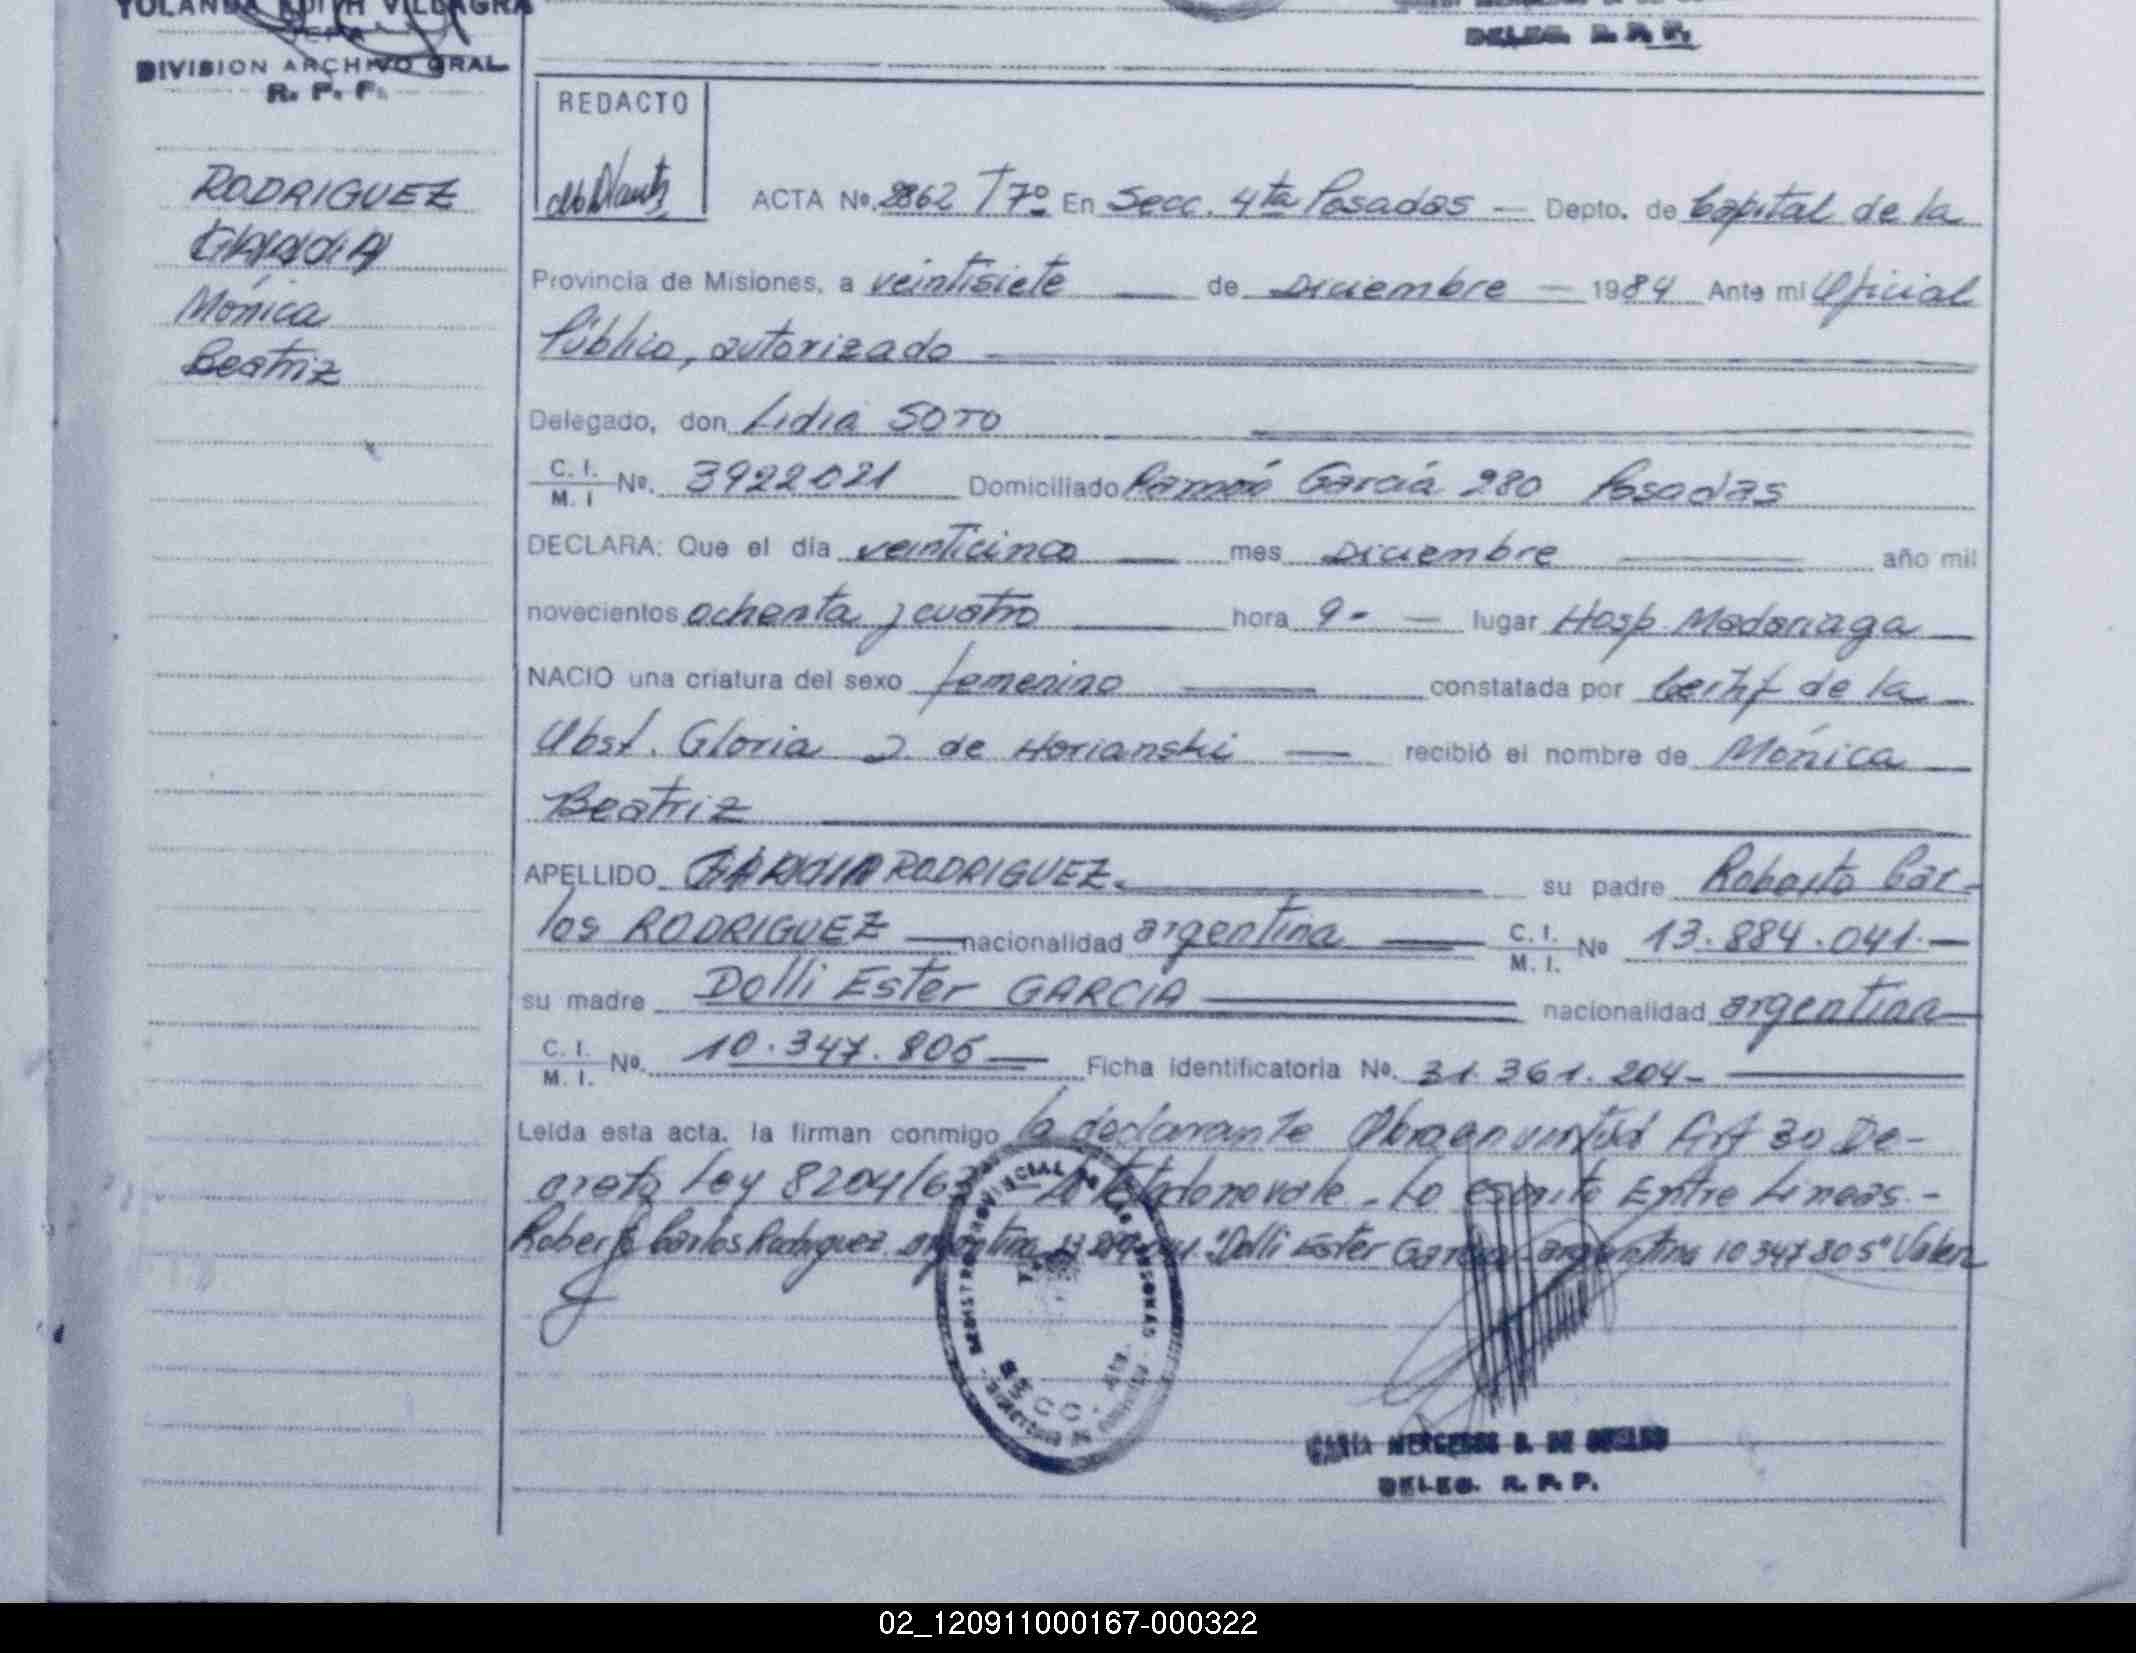 YOLANDA EDITH VILLAGRA
DIVISION ARCHIVO GRAL
R. P. P.
DELEG. R. P. P.
RODRIGUEZ
GARCIA
Mónica
Beatriz
REDACTO
ACTA No. 2862 T7º En Secc. 4ta Posadas — Depto. de Capital de la
Provincia de Misiones, a veintisiete — de Diciembre — 1984 Ante mi Oficial
Público, autorizado
Delegado, don Lidia SOTO
C. I.
M. I No. 3922021 Domiciliado Ramón García 280 Posadas
DECLARA: Que el día veinticinco — mes Diciembre — año mil
novecientos ochenta y cuatro — hora 9- — lugar Hosp. Madariaga —
NACIO una criatura del sexo femenino — constatada por Certif de la
Obst. Gloria J. de Horianski — recibió el nombre de Mónica
Beatriz
APELLIDO GARCIA RODRIGUEZ. su padre Roberto Car-
los RODRIGUEZ — nacionalidad argentina — C. I.
M. I. No 13.884.041.—
su madre Dolli Ester GARCIA — nacionalidad argentina—
C. I.
M. I. No. 10.347.805 — Ficha identificatoria No. 31.361.204-
Leída esta acta, la firman conmigo la declarante Obra en virtud Art 30 De-
creto Ley 8204/63 — Lo testado no vale. Lo escrito Entre Lineas.-
Roberto Carlos Rodriguez argentina 13 884 041. "Dolli Ester Garcia argentina 10 347 805" Valen
REGISTRO PROVINCIAL DE LAS PERSONAS
SECC. 4ta.
MERCEDES DE
DELEG. R. P. P.
02_120911000167-000322